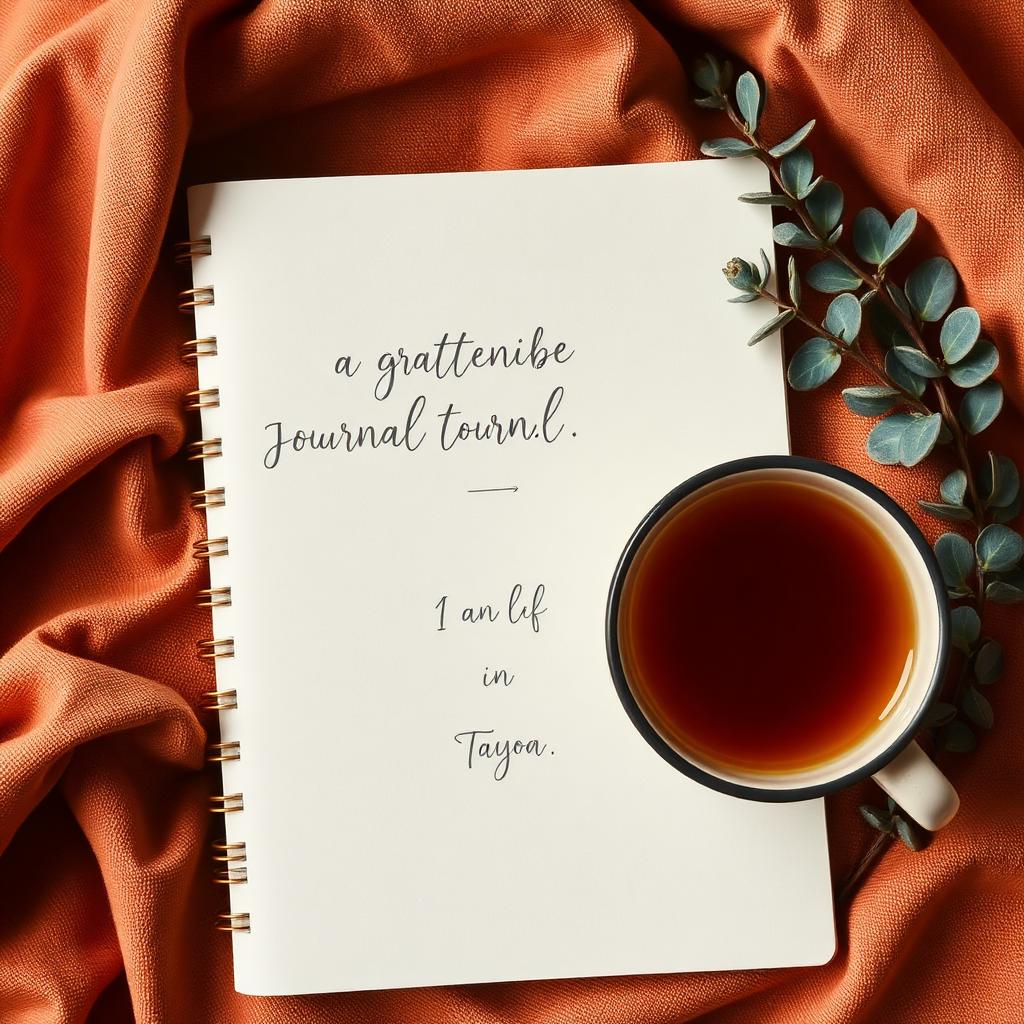 a grattenibe
Journal tourn.l.
I an lif
in
Tayoa.